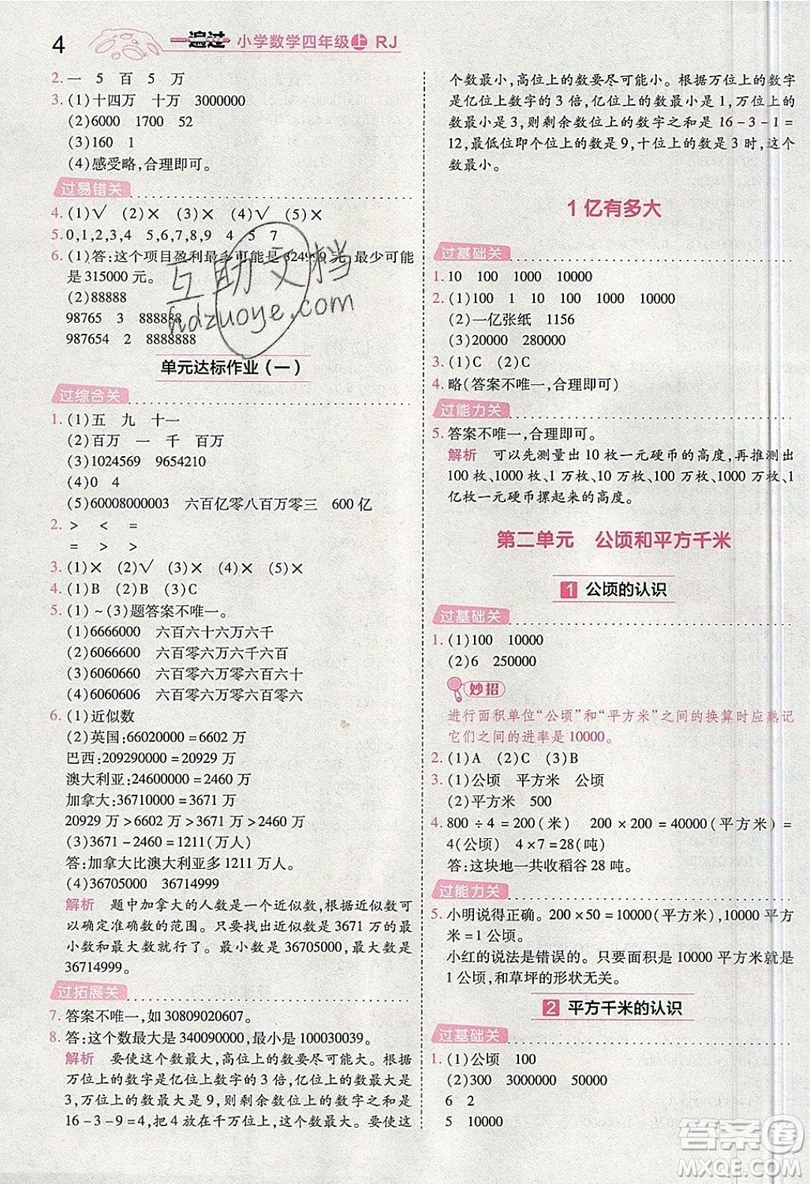 4 一遍过 小学数学四年级上 RJ
2. 一 五 百 五 万
3. (1)十四万 十万 3000000
(2)6000 1700 52
(3)160 1
(4)感受略,合理即可。
过易错关
4. (1)√ (2)× (3)× (4)×
5. 0,1,2,3,4 5,6,7,8,9 4 5 6 7
6. (1)答:这个项目盈利最多可能是32499 元,最少可能
是 315000 元。
(2)88888
987654 3 888888
98765 2 88888
单元达标作业(一)
过综合关
1. (1)五 九 十一
(2)百万 一 千 百万
(3)1024569 9654210
(4)0 4
(5)60008000003 六百亿零八百万零三 600 亿
2. > < =
> < =
3. (1)× (2)√ (3)× (4)×
4. (1)B (2)D (3)A (4)B
5. (1)~(3)题答案不唯一。
(1)6666000 六百六十六万六千
(2)6006600 六百零六万六千六百
(3)6060606 六百零六万零六百零六
(4)6060060 六百零六万零六十
6. (1)近似数
(2)英国:66020000=6602 万
巴西:209290000=20929 万
澳大利亚:24600000=2460 万
加拿大:36710000=3671 万
20929 万>6602 万>3671 万>2460 万
(3)3671-2460=1211(万)
答:加拿大比澳大利亚多 1211 万人。
(4)36714999 36705000
解析 题中加拿大的人数是一个近似数,根据近似数可
以确定准确数的范围。只要求出近似数是 3671 万的最
小数和最大数就行了。最小数是 36705000,最大数是
36714999。
过拓展关
7. 答案不唯一,如 30809020607。
8. 答:这个数最大是 340090000,最小是 100030039。
解析 要使这个数最大,高位上的数要尽可能大,根据
万位上的数字是亿位上数字的 3 倍,亿位上的数最大
是 3,万位上的数最大是 9,则剩余数位上的数字之和是
16-3-9=4,把 4 放在千万位上,这个数最大。要使这
个数最小,高位上的数要尽可能小,根据万位上的数字
是亿位上数字的 3 倍,亿位上的数最小是 1,万位上的数
最小是 3,则剩余数位上的数字之和是 16-3-1=
12,最低位即个位上的数是 9,十位上的数是 3 时,这个
数最小。
1 亿有多大
过基础关
1. 10 100 1000 10000
2. (1)100 1000 10000 10000
(2)一亿张纸 1156
(3)20000 280000
3. (1)C (2)C
4. 略(答案不唯一,合理即可)
过能力关
5. 答案不唯一,合理即可。
解析 可以先测量出 10 枚一元硬币的高度,再推测出
100 枚、1000 枚、1 万枚、10 万枚、100 万枚、1000 万枚、1
亿枚一元硬币摞起来的高度。
第二单元 公顷和平方千米
1 公顷的认识
过基础关
1. (1)100 10000
(2)6 250000
妙招
进行面积单位“公顷”和“平方米”之间的换算时应熟记
它们之间的进率是 10000。
2. (1)A (2)C (3)B
3. (1)公顷 平方米 公顷
(2)平方米 500
4. 800÷4=200(米) 200×200=40000(平方米)=
4(公顷) 4×7=28(吨)
答:这块地一共收稻谷 28 吨。
过能力关
5. 小明说得正确。200×50=10000(平方米),10000 平方
米=1 公顷。
小红的说法是错误的。只要面积是 10000 平方米就是
1 公顷,和草坪的形状无关。
2 平方千米的认识
过基础关
1. (1)公顷 100 1000000
(2)300 3000000 50000
6 2
5 10000
互助文档
hdzuoye.com
答案圈
MXQE.COM